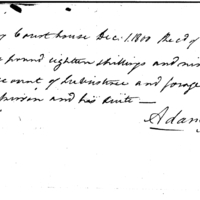 Courthouse Dec. 1. 1800 Rec'd of
pound eighteen shillings and nine
account of Subsistence and forage
and his Suite —
Adam